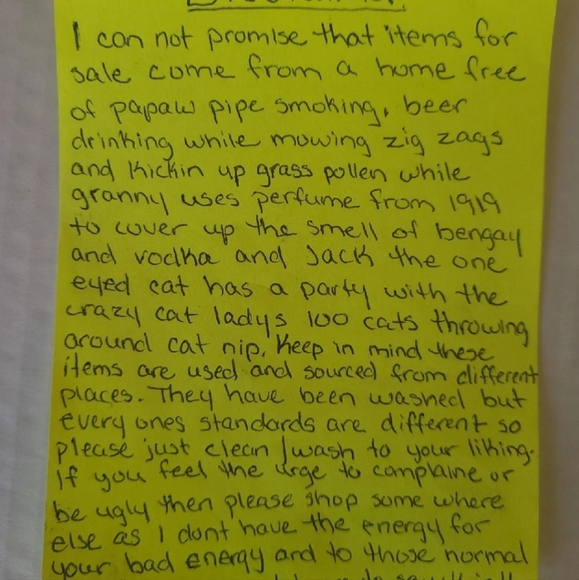 I can not promise that items for
sale come from a home free
of papaw pipe smoking, beer
drinking while mowing zig zags
and kickin up grass pollen while
granny uses perfume from 1919
to cover up the smell of bengay
and vodka and Jack the one
eyed cat has a party with the
crazy cat ladys 100 cats throwing
around cat nip. Keep in mind these
items are used and sourced from different
places. They have been washed but
every ones standards are different so
please just clean/wash to your liking.
If you feel the urge to complaine or
be ugly then please shop some where
else as I dont have the energy for
your bad energy and to those normal